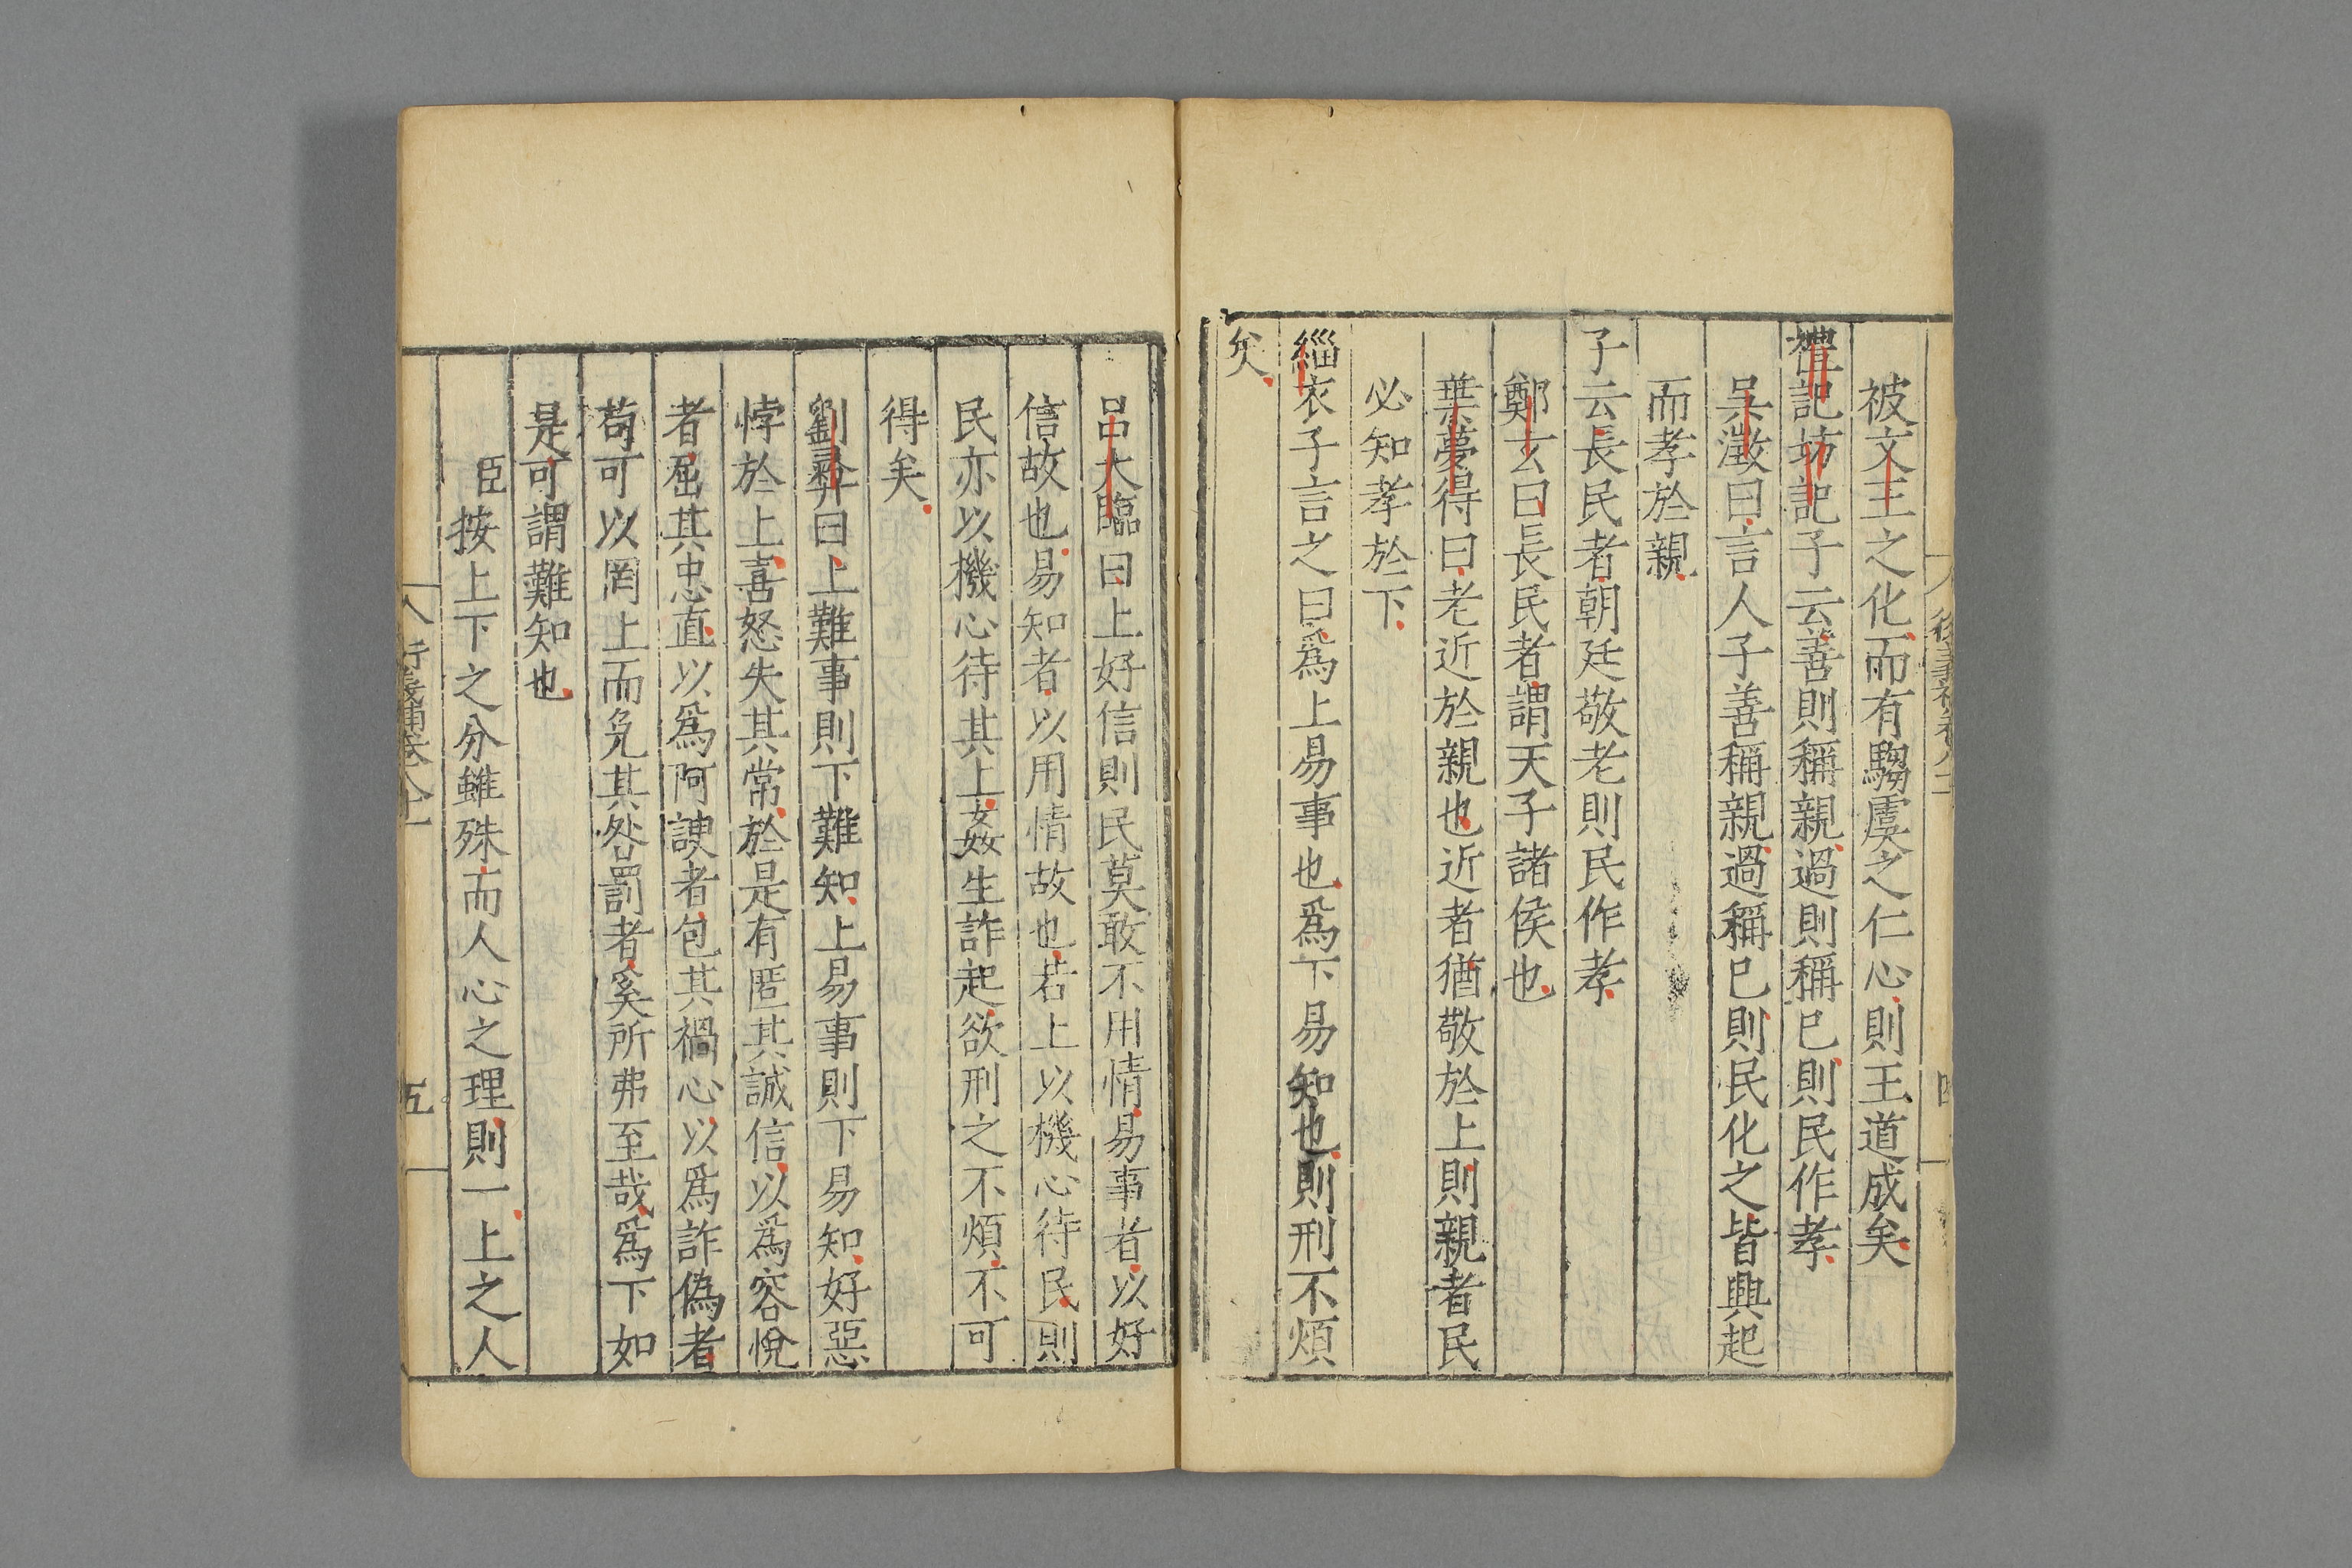 被文王之化而有騶虞之仁心則王道成矣
禮記坊記子云善則稱親過則稱已則民作孝
吳澂曰言人子善稱親過稱已則民化之皆興起
而孝於親
子云長民者朝廷敬老則民作孝
鄭玄曰長民者謂天子諸侯也
葉夢得曰老近於親也近者猶敬於上則親者民
必知孝於下
緇衣子言之曰爲上易事也爲下易知也則刑不煩
矣
呂大臨曰上好信則民莫敢不用情易事者以好
信故也易知者以用情故也若上以機心待民則
民亦以機心待其上姦生詐起欲刑之不煩不可
得矣
劉彝曰上難事則下難知上易事則下易知好惡
悖於上喜怒失其常於是有匿其誠信以爲容悅
者屈其忠直以爲阿諛者包其禍心以爲詐偽者
苟可以罔上而免其咎罰者奚所弗至哉爲下如
是可謂難知也
臣按上下之分雖殊而人心之理則一上之人
衍義補卷八十一
五